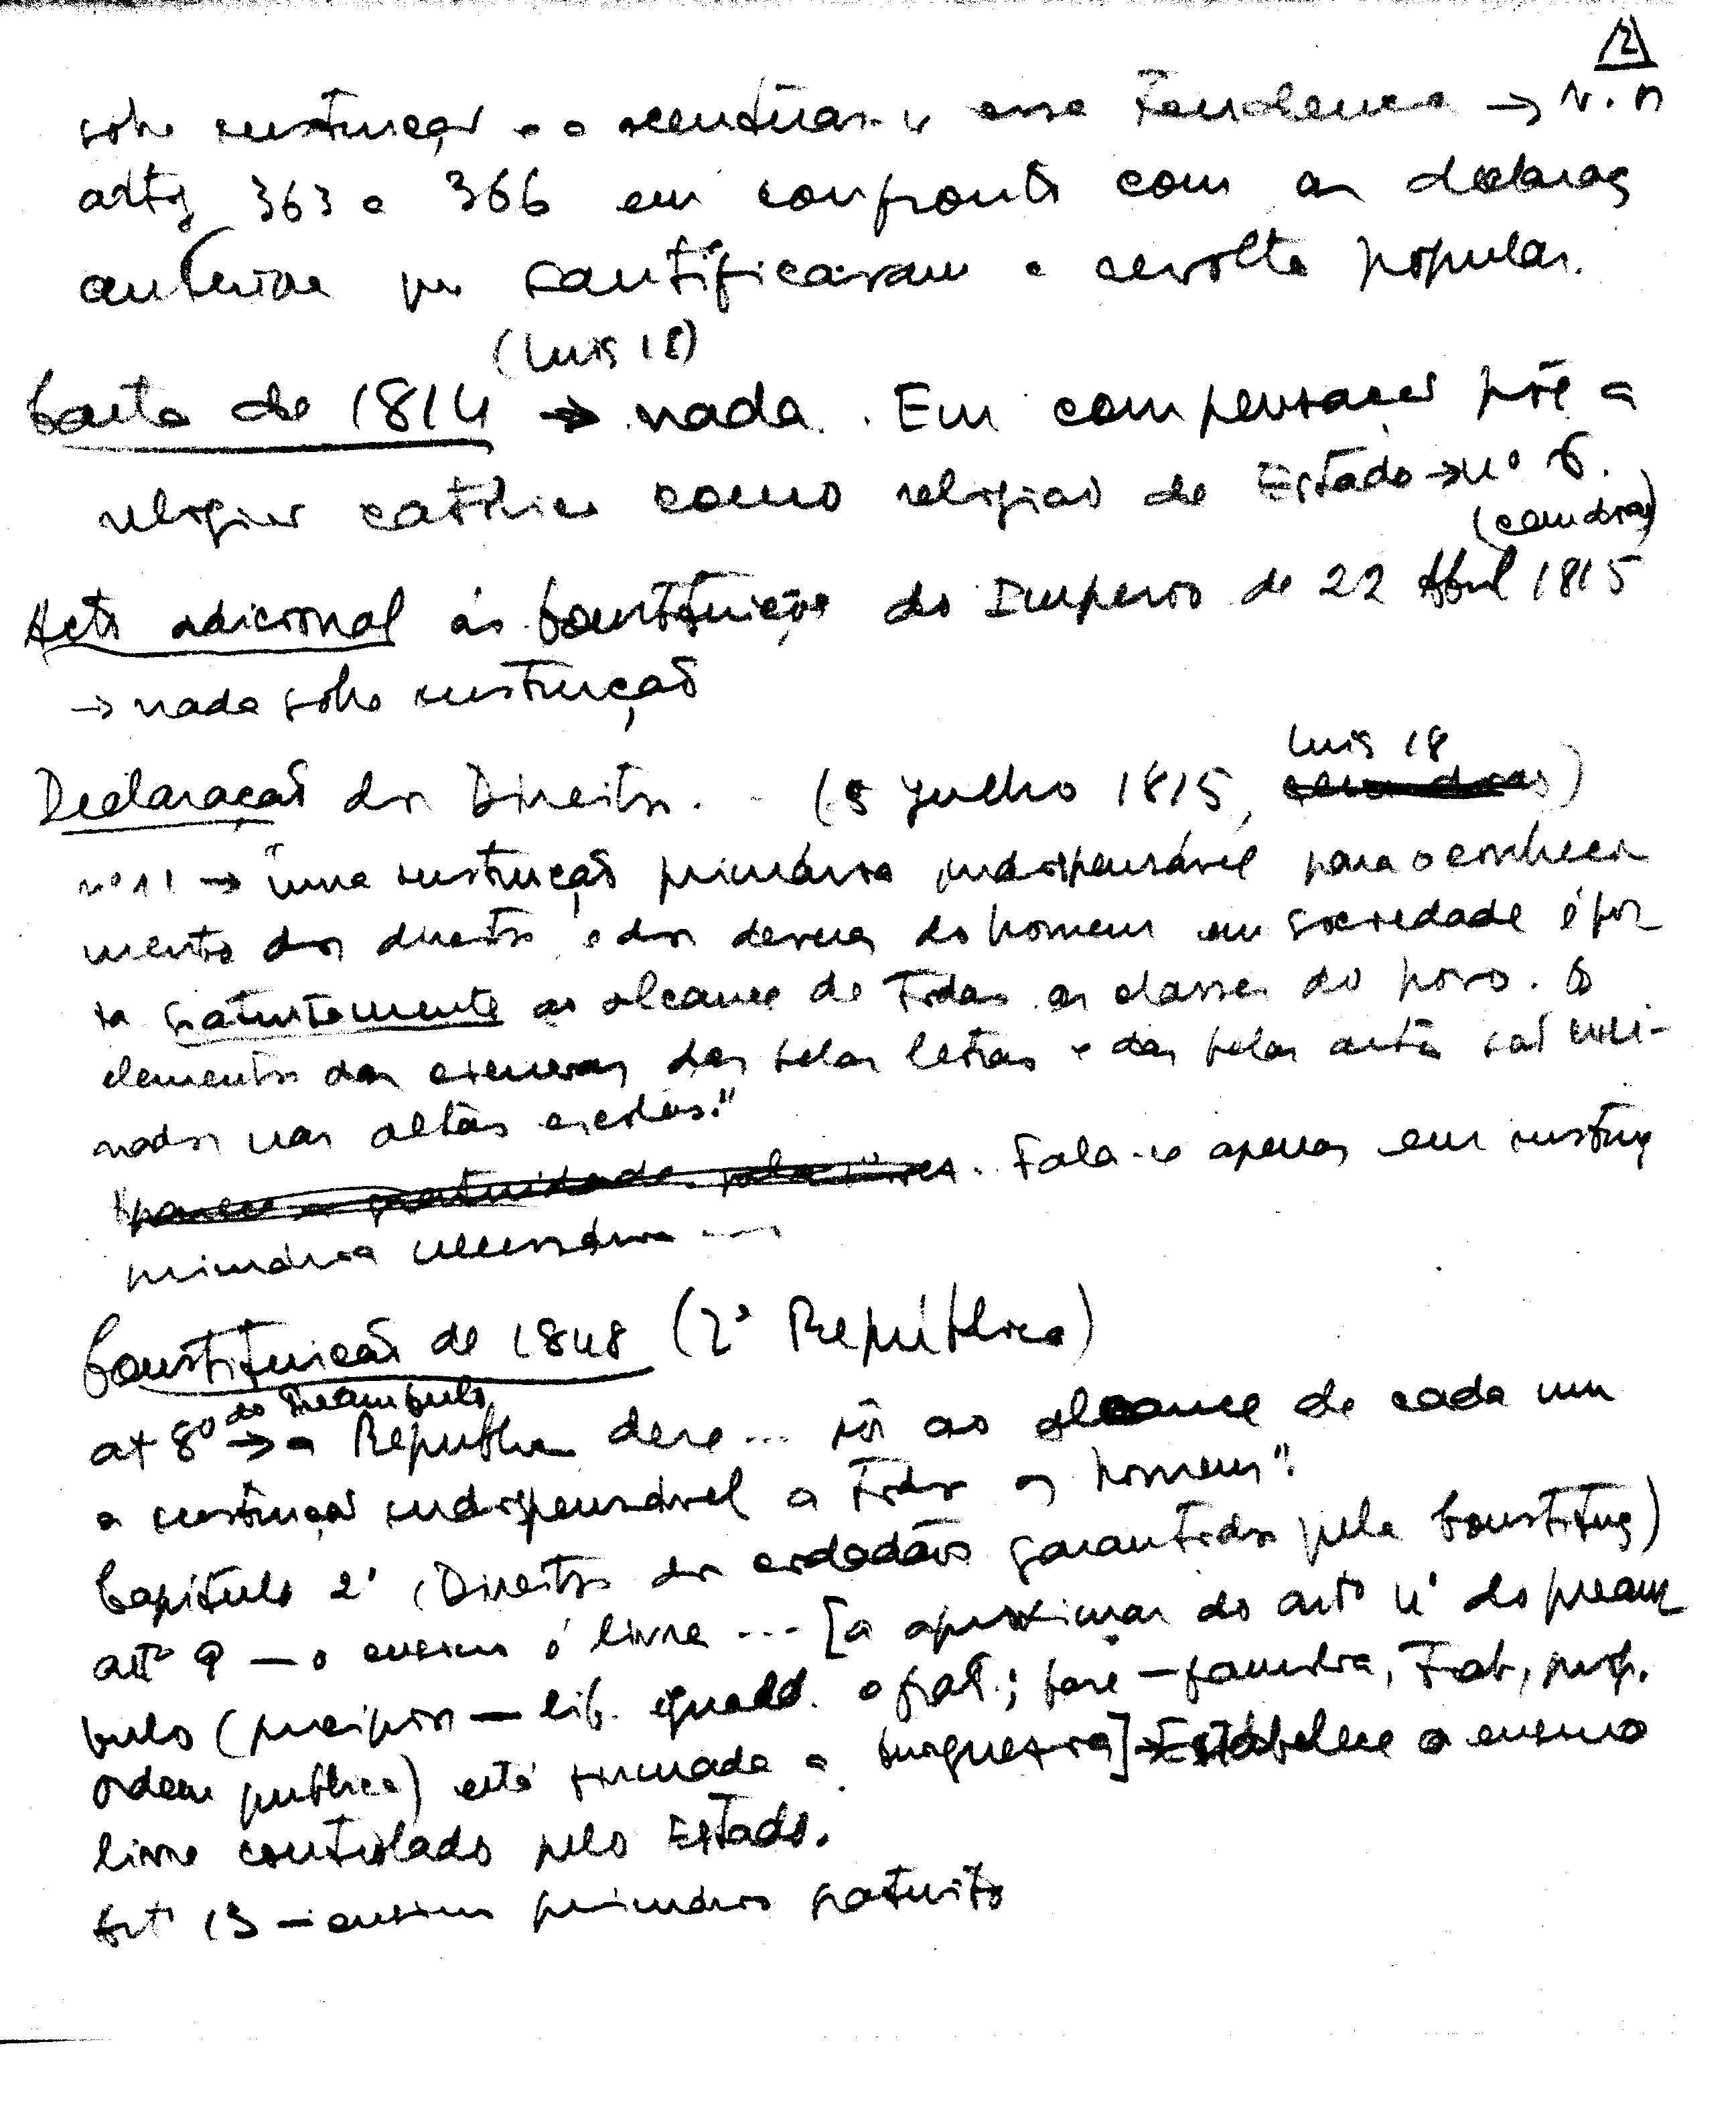 2
sobre instrução e o acentuar-se essa tendência → v. os
artºs 363 e 366 em confronto com as declaraç
anteriores que santificavam a revolta popular.
(Luis 18)
Carta de 1814 → nada. Em compensação põe a
religião católica como religião de Estado → nº 6.
(cem dias)
Acto adicional às Constituições do Imperio de 22 Abril 1815
→ nada sobre instrução
Luis 18
Declaração dos Direitos. - (5 Julho 1815, cem dias)
nº 11 → "uma instrução primária indispensável para o conheci
mento dos direitos e dos deveres do homem em sociedade é pos
ta gratuitamente ao alcance de todas as classes do povo. Os
elementos das ciencias, das belas letras e das belas artes são ensi-
nados nas altas escolas."
Aparece a gratuidade. Fala-se apenas em instruç
primária necessária ....
Constituição de 1848 (2ª República)
do Preambulo
art 8º → a Republica deve... pôr ao alcance de cada um
a instrução indispensável a todos os homens".
Capítulo 2º (Direitos dos cidadãos garantidos pela Constituiç)
artº 9 — o ensino é livre ... [a aproximar do artº 4º do preâm
bulo (principios — lib. iguald. e frat.; base — familia, Trab, prop.
ordem publica) está firmada a burguesia] → Estabelece o ensino
livre controlado pelo Estado.
Artº 13 — ensino primário gratuito